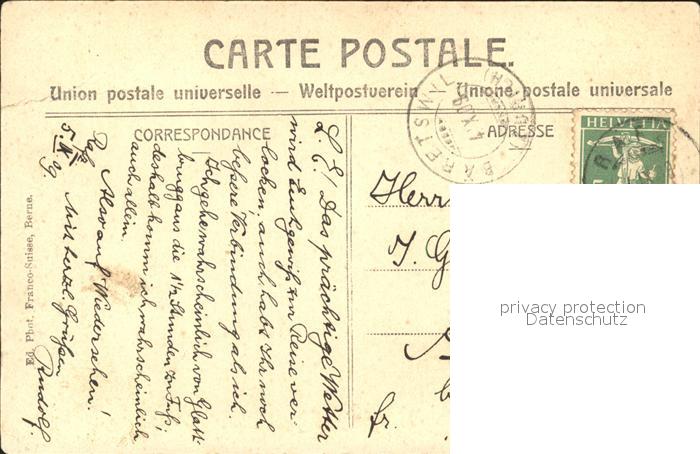 CARTE POSTALE.
Union postale universelle — Weltpostverein — Unione postale universale
CORRESPONDANCE
ADRESSE
HELVETIA
BÄRETSWYL
Herr
J. G
fr.
privacy protection
Datenschutz
L. E! Das prächtige Wetter
wird Euch gewiss zum Reise ver-
locken, auch habt Ihr noch
bessere Verbindung als ich.
Ich gehe wahrscheinlich von Glatt-
brugg aus die 1½ Stunden zu Fuss,
deshalb komm ich wahrscheinlich
auch allein.
Also auf Wiedersehen!
Mit herzl. Grüssen
Rudolf.
Ed. Phot. Franco-Suisse, Berne.